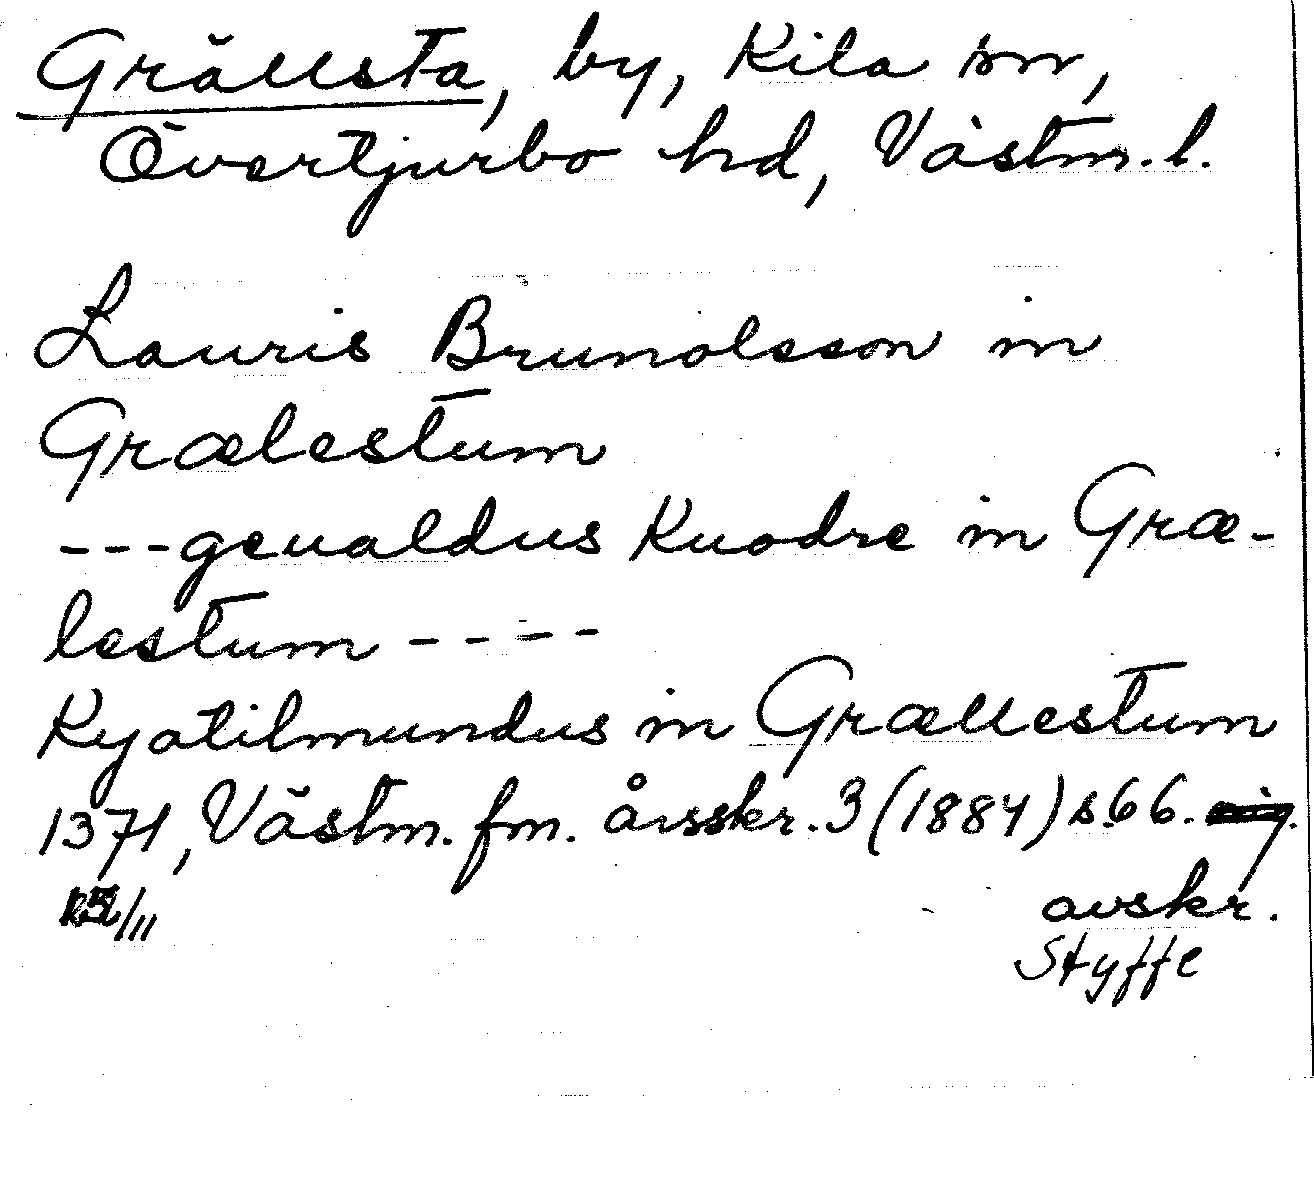 Grällsta, by, Kila sn,
Övertjurbo hd, Västm. l.
Lauris Brunolsson in
Grælestum
---geualdus Kuodre in Græ-
lestum ----
Kyatilmundus in Grællestum
1371, Västm. fm. årsskr. 3 (1884) s. 66.
avskr.
Styffe